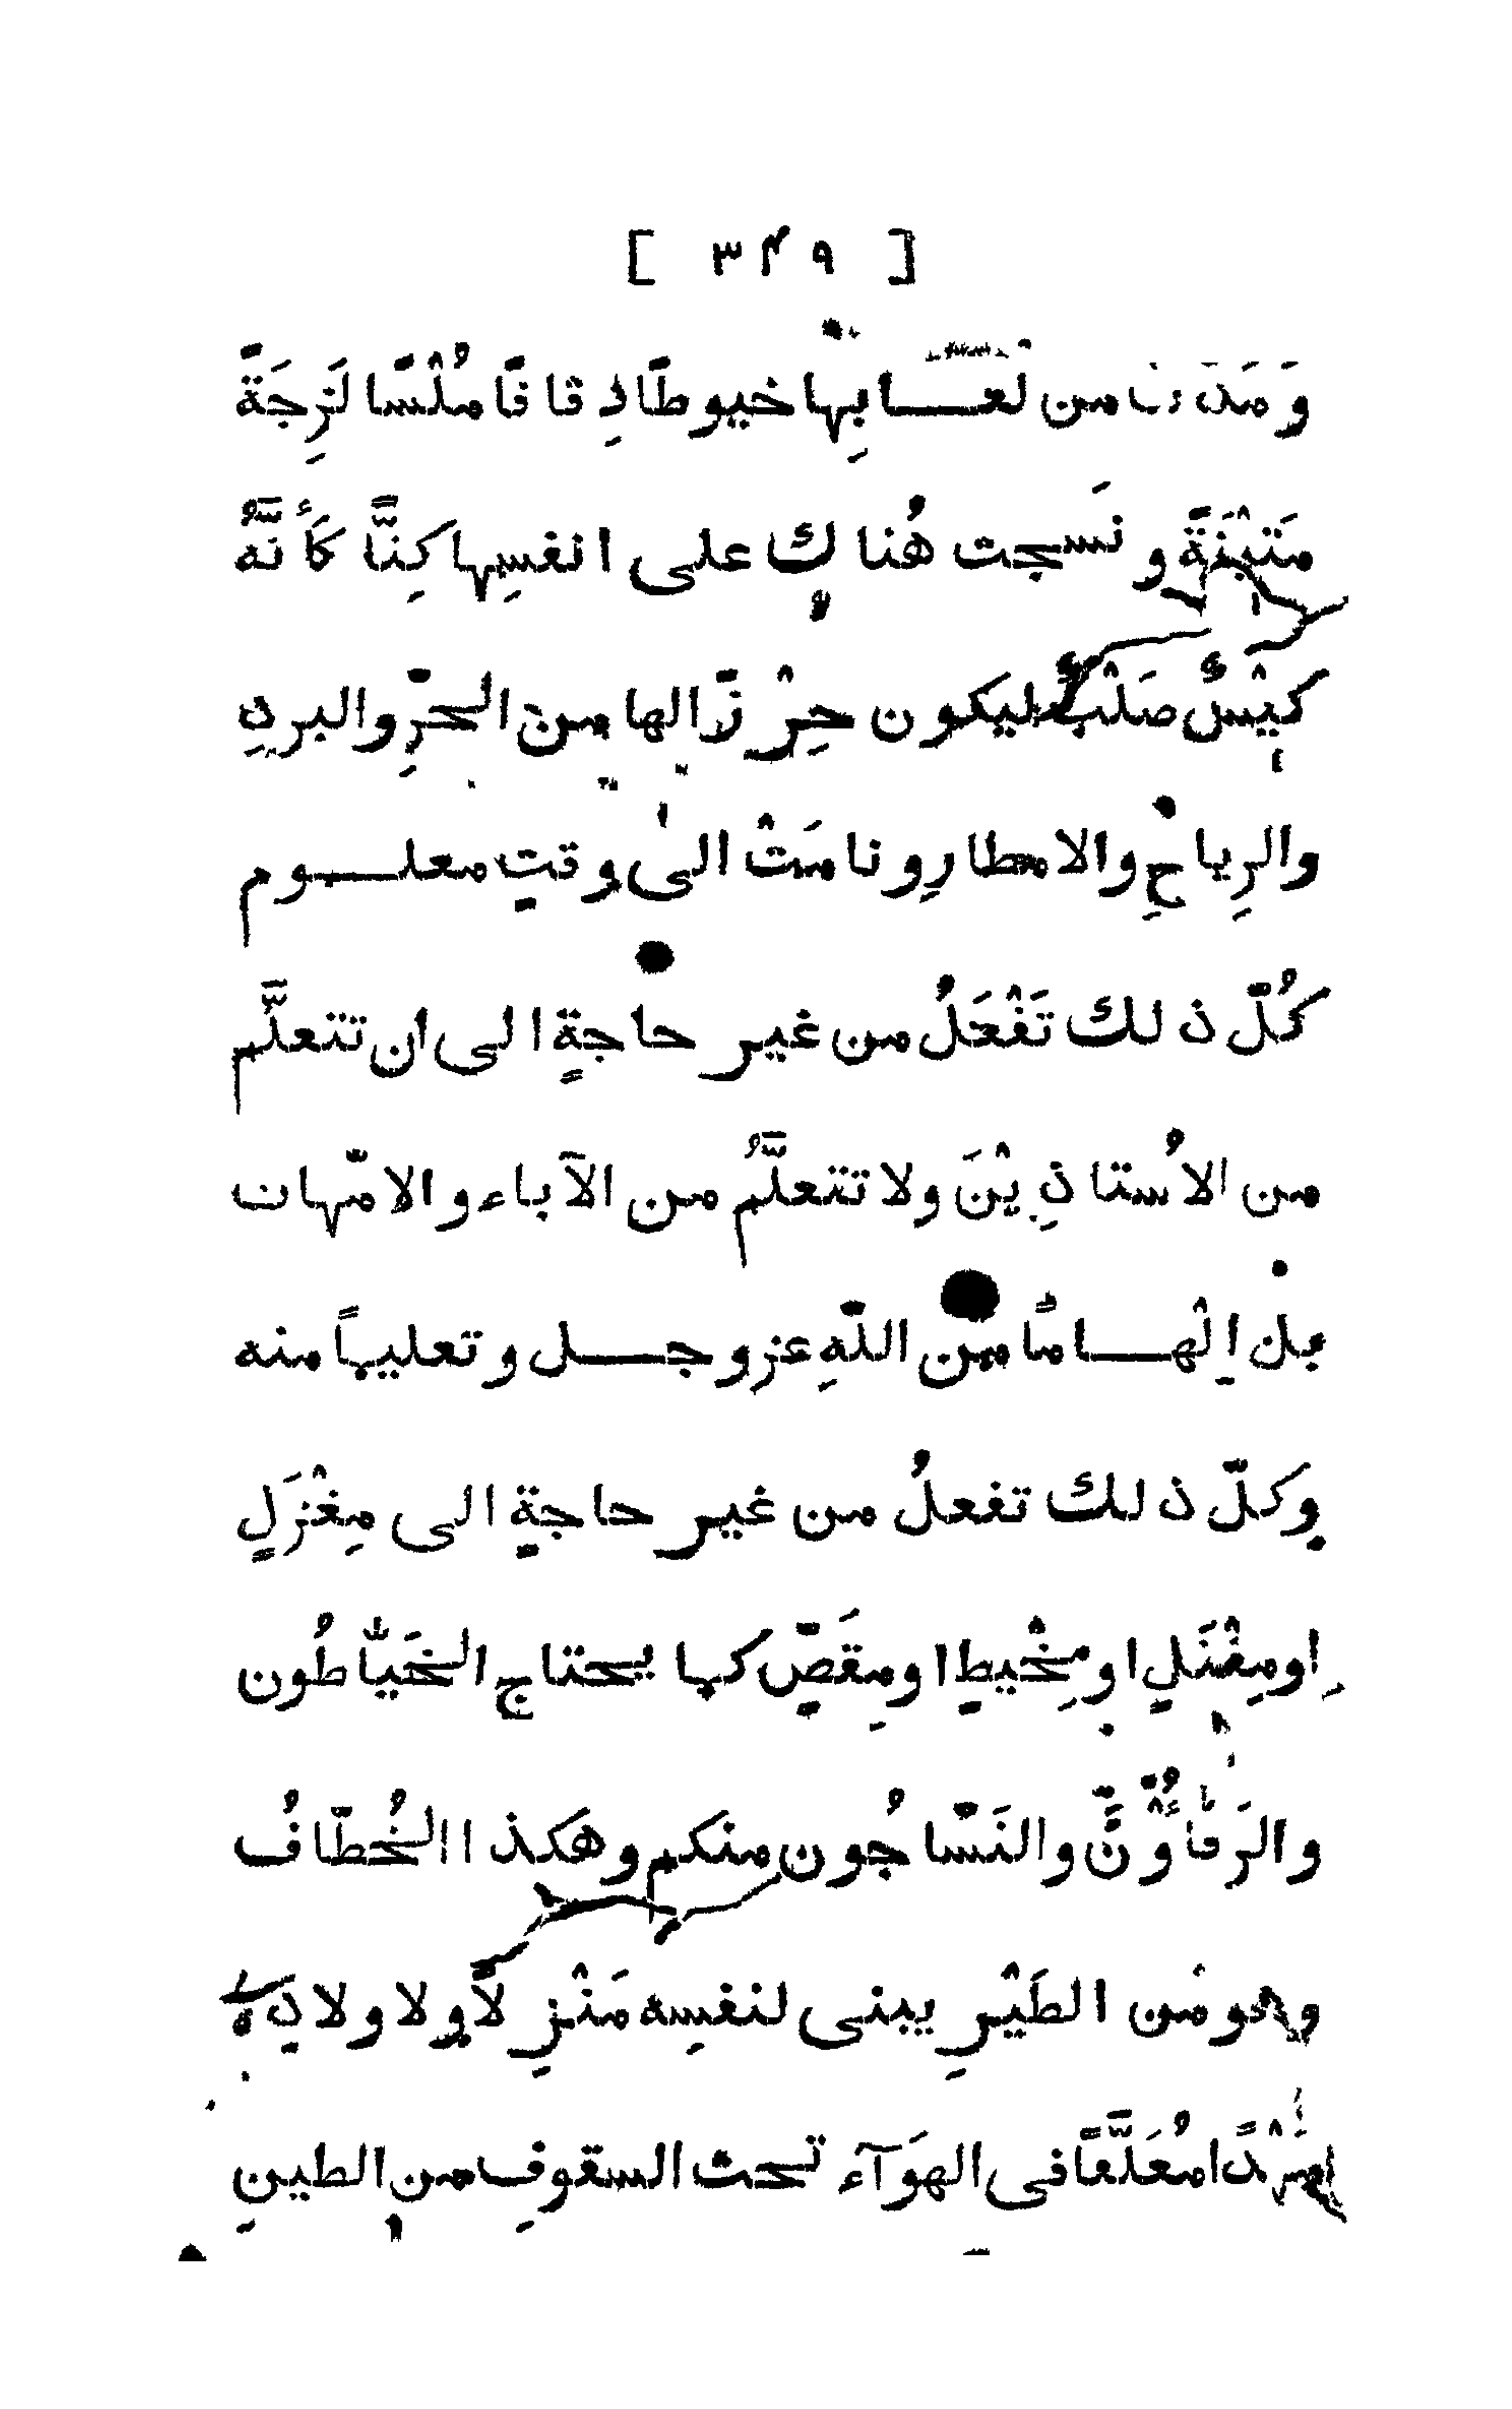 [ ٣٤٩ ]
وَ مَدّ من لعـابِها خيوطًا دِقاقًا مُلْسًا لَزِجَةً
مَتِيْنَةً و نَسجت هُناك على انفسِها كِنًّا كَأنَّهُ
كِيْسٌ صَلْبٌ ليكون حِرْزًا لها من الحرِّ والبردِ
والرِياحِ والامطارِ و نامَتْ الى وقتٍ معلـوم
كُلّ ذلك تَفْعَلُ من غير حاجةٍ الى ان تتعلَّم
من الاُستاذِيْنَ ولا تتعلَّمُ من الآباء و الامّهات
بل اِلْهـامًا من اللّهِ عز و جـل و تعليمًا منه
و كلّ ذلك تفعلُ من غير حاجةٍ الى مِغْزَلٍ
او مِفْتَلٍ او مِخْيطٍ او مِقَصٍّ كما يحتاج الخَيّاطُون
و الرَفّاؤُنَ و النَسّاجُون منكم و هكذا الخُطّافُ
و هو من الطَيْرِ يبنى لنفسِه مَنْزِلًا و لاولادِهٖ
مَهْدًا مُعَلَّقًا فى الهَوَآء تحت السقوفِ من الطينِ